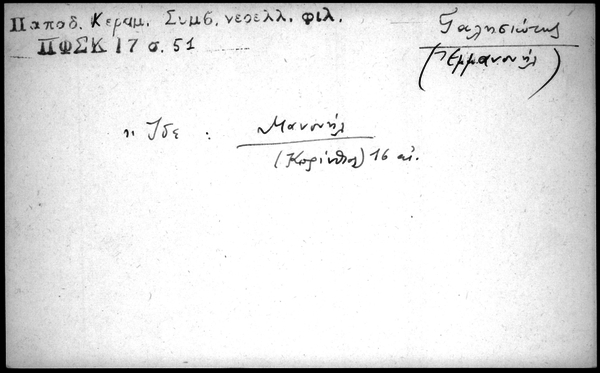 Παπαδ. Κεραμ. Συμβ. νεοελλ. φιλ.
ΠΦΣΚ 17 σ. 51
Γαλησιώτης
(Ἐμμανουήλ)
Ἰδε : Μανουήλ
(Κορίνθιος) 16 αἰ.